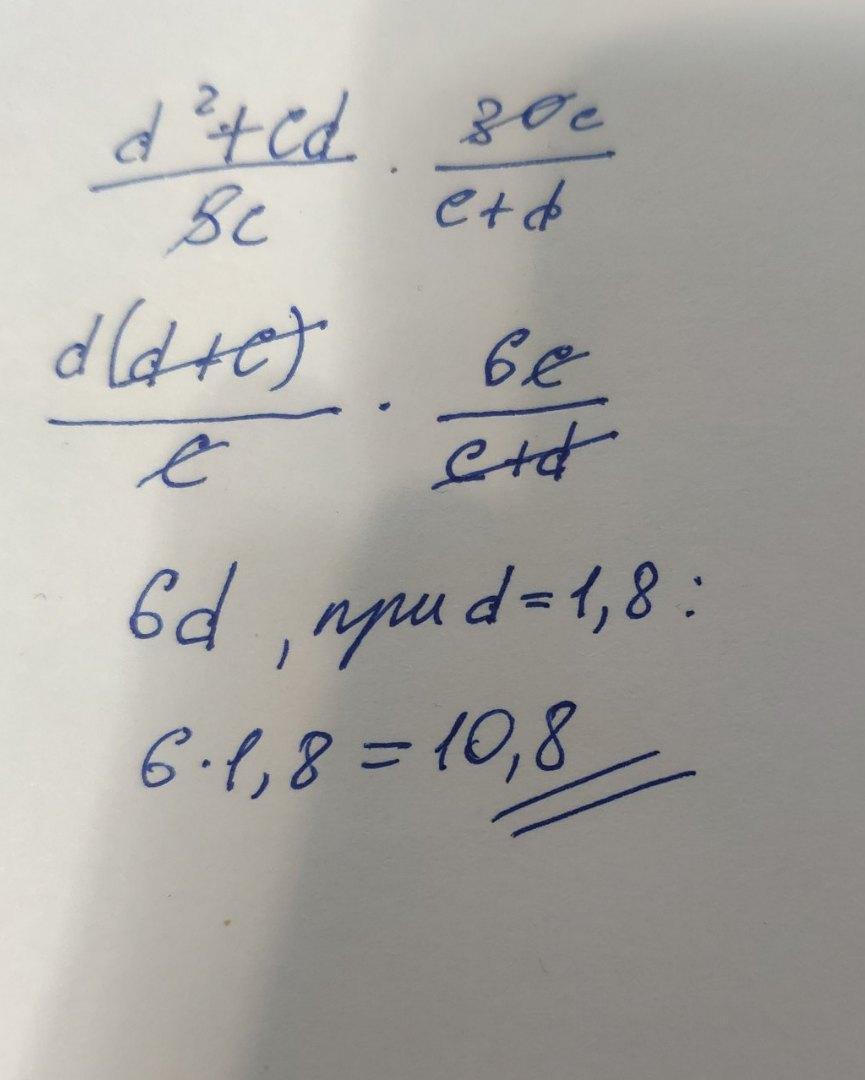 d²+cd / 5c · 30c / c+d
d(d+c) / c · 6c / c+d
6d , при d=1,8:
6·1,8=10,8